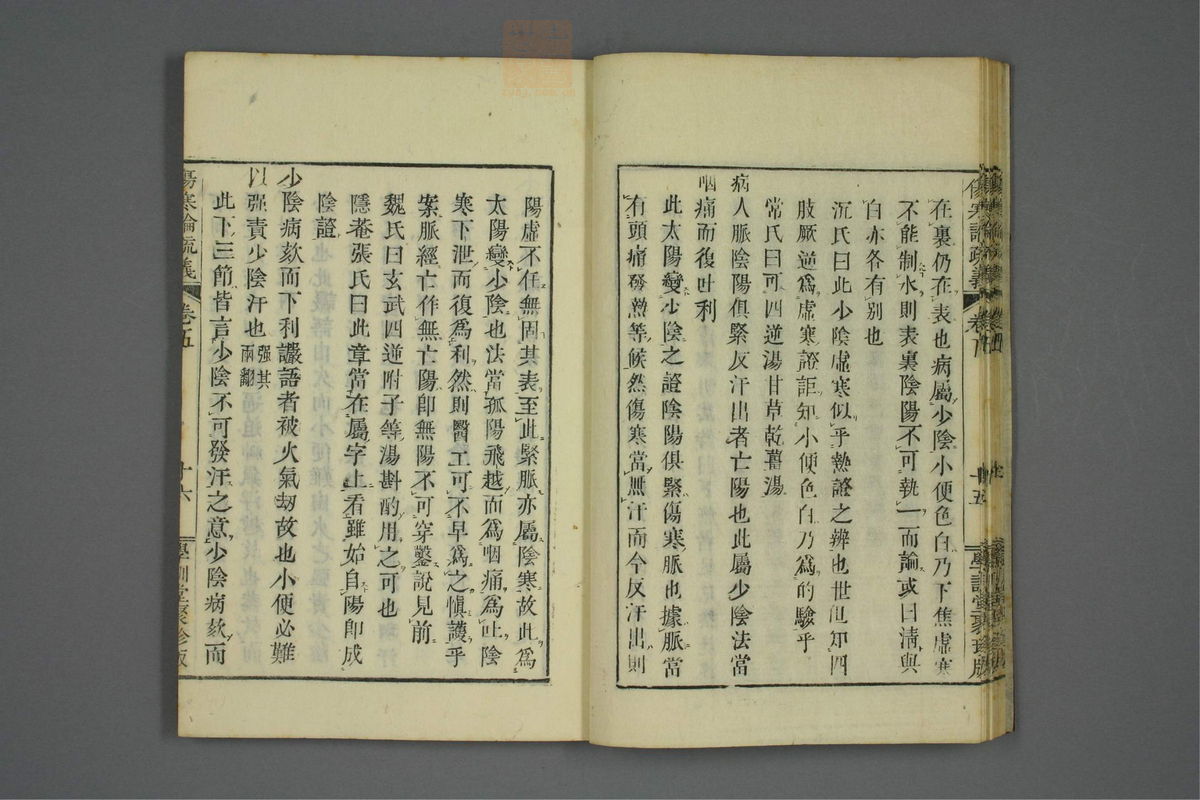 在裏仍在表也病屬少陰小便色白乃下焦虛寒
不能制水則表裏陰陽不可執一而論或曰淸與
白亦各有別也
沉氏曰此少陰虛寒似乎熱證之辨也世但知四
肢厥逆爲虛寒證詎知小便色白乃爲的驗乎
常氏曰可四逆湯甘草乾薑湯
病人脈陰陽俱緊反汗出者亡陽也此屬少陰法當
咽痛而復吐利
此太陽變少陰之證陰陽俱緊傷寒脈也據脈當
有頭痛發熱等候然傷寒當無汗而今反汗出則
陽虛不任無固其表至此緊脈亦屬陰寒故此爲
太陽變少陰也法當孤陽飛越而爲咽痛爲吐陰
寒下泄而復爲利然則醫工可不早爲之愼護乎
案脈經亡作無亡陽卽無陽不可穿鑿說見前
魏氏曰玄武四逆附子等湯斟酌用之可也
隱菴張氏曰此章當在屬字上看雖始自陽卽成
陰證
少陰病欬而下利讝語者被火氣劫故也小便必難
以强責少陰汗也强其兩翻
此下三節皆言少陰不可發汗之意少陰病欬而
傷寒論疏義
卷五
十六
學訓堂聚珍版